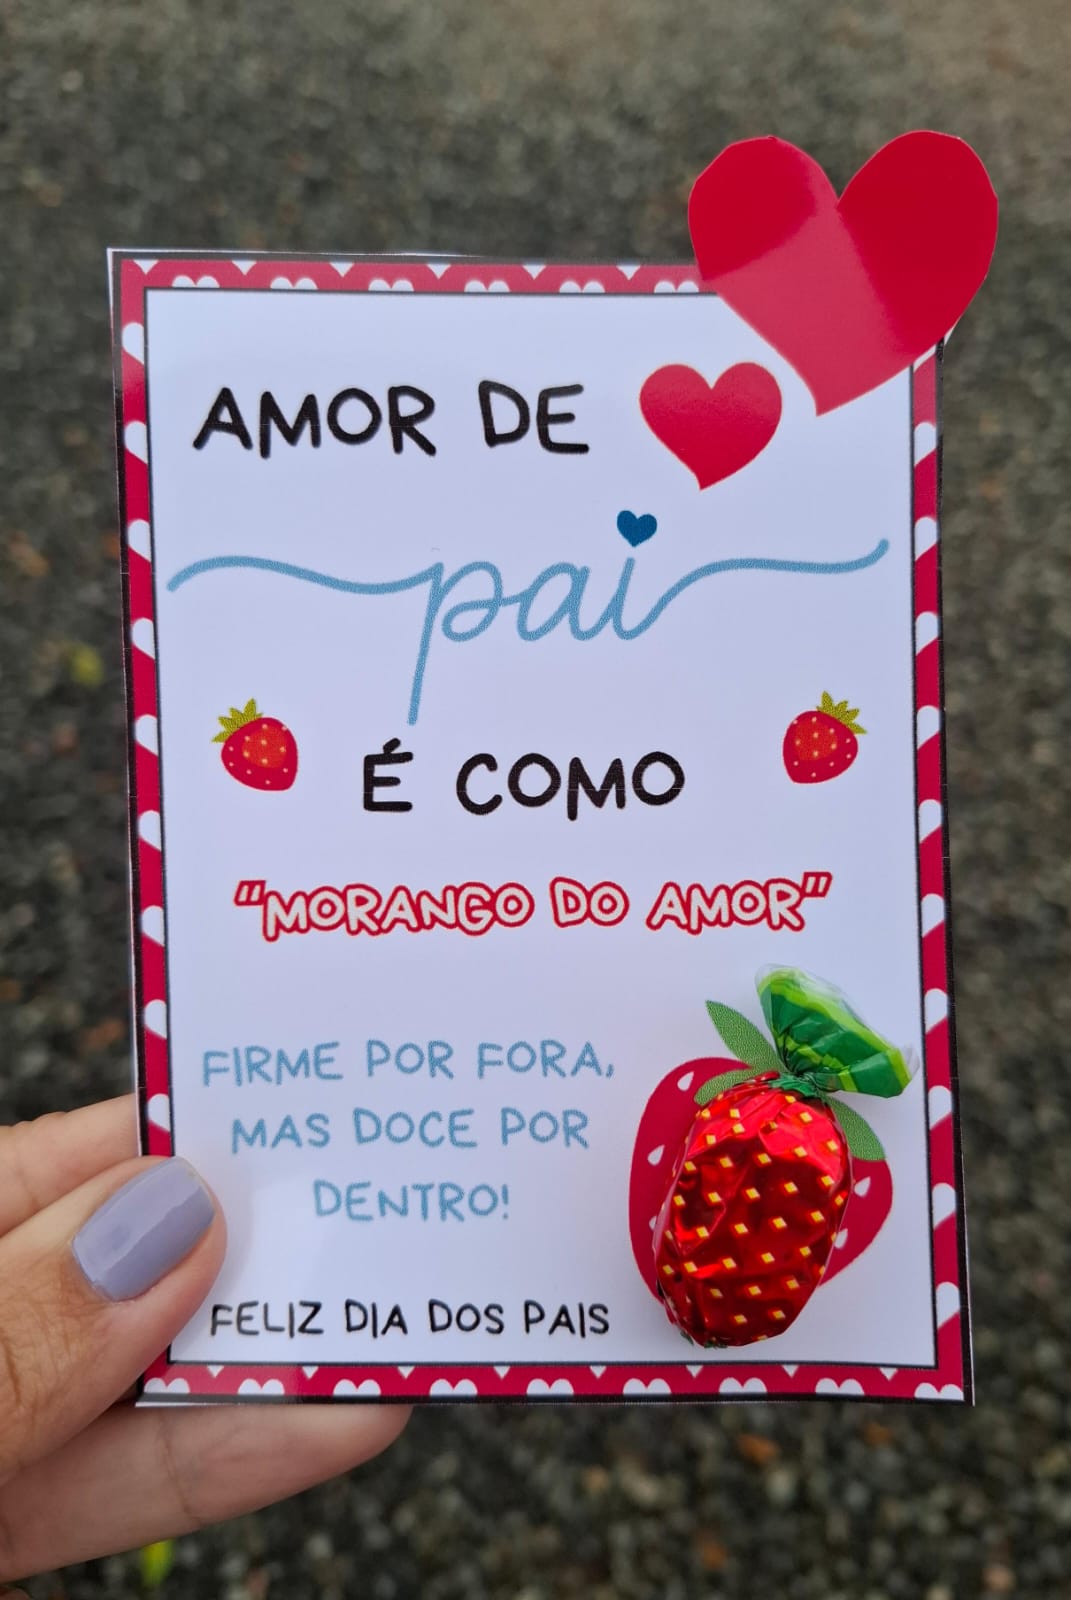 AMOR DE
pai
É COMO
"MORANGO DO AMOR"
FIRME POR FORA,
MAS DOCE POR
DENTRO!
FELIZ DIA DOS PAIS